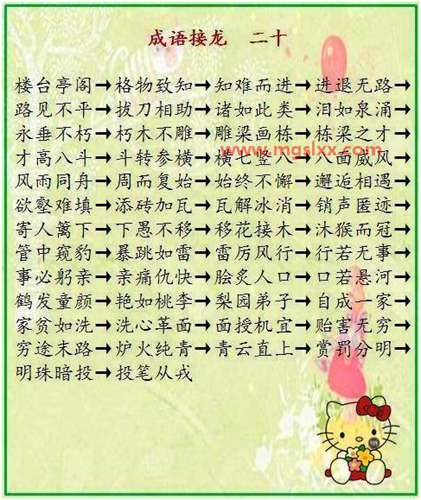 成语接龙 二十
楼台亭阁→格物致知→知难而进→进退无路→
路见不平→拔刀相助→诸如此类→泪如泉涌→
永垂不朽→朽木不雕→雕梁画栋→栋梁之才→
www.mgslxx.com
才高八斗→斗转参横→横七竖八→八面威风→
风雨同舟→周而复始→始终不懈→邂逅相遇→
欲壑难填→添砖加瓦→瓦解冰消→销声匿迹→
寄人篱下→下愚不移→移花接木→沐猴而冠→
管中窥豹→暴跳如雷→雷厉风行→行若无事→
事必躬亲→亲痛仇快→脍炙人口→口若悬河→
鹤发童颜→艳如桃李→梨园弟子→自成一家→
家贫如洗→洗心革面→面授机宜→贻害无穷→
穷途末路→炉火纯青→青云直上→赏罚分明→
明珠暗投→投笔从戎